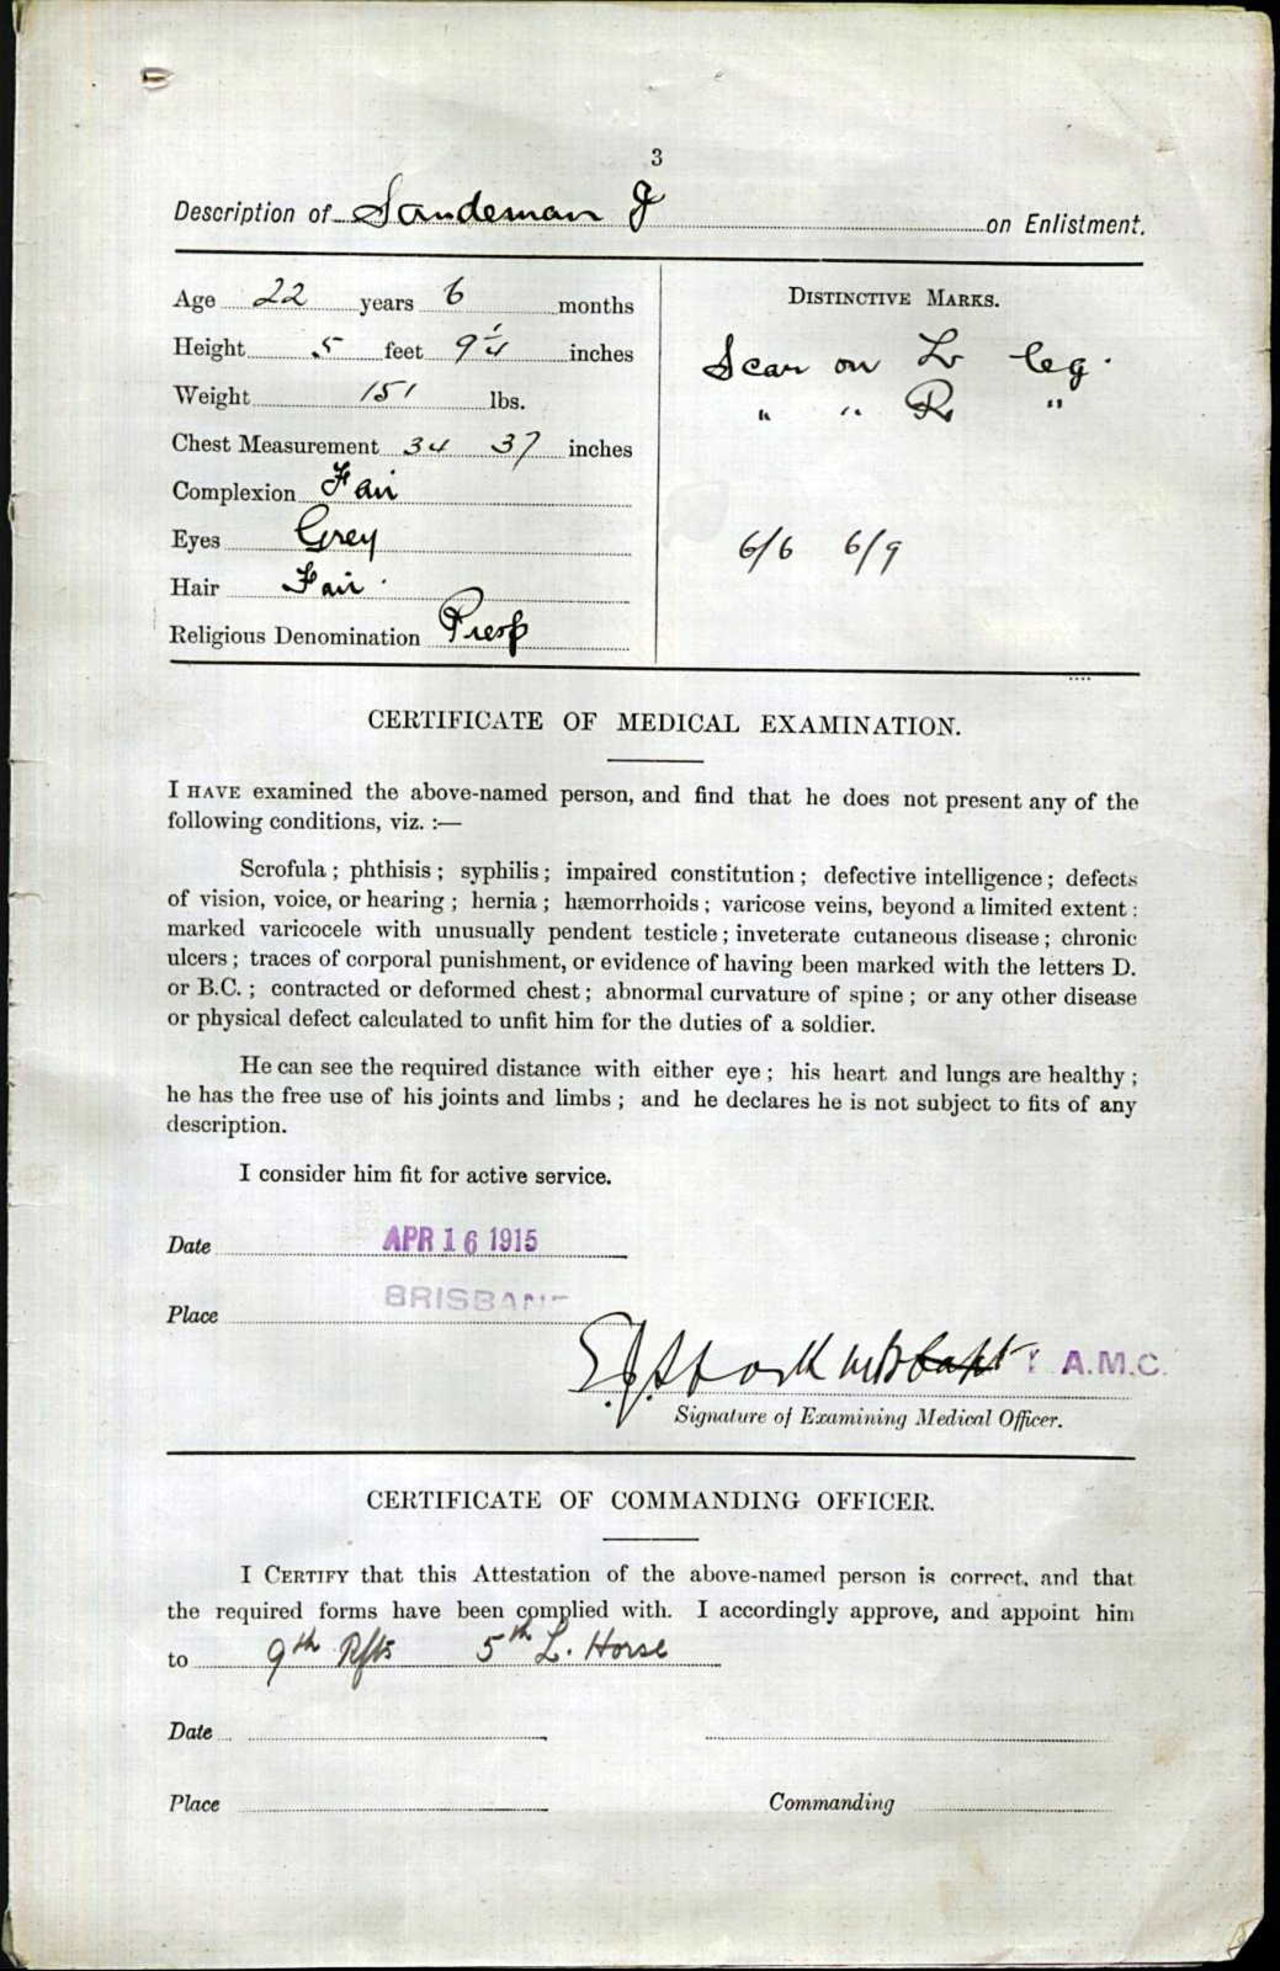 3
Description of Sandeman J on Enlistment.
Age 22 years 6 months
Height 5 feet 9 1/4 inches
Weight 151 lbs.
Chest Measurement 34 37 inches
Complexion Fair
Eyes Grey
Hair Fair.
Religious Denomination Presb
DISTINCTIVE MARKS.
Scar on L leg.
" " R "
6/6 6/9
CERTIFICATE OF MEDICAL EXAMINATION.
I HAVE examined the above-named person, and find that he does not present any of the
following conditions, viz. :—
Scrofula ; phthisis ; syphilis ; impaired constitution ; defective intelligence ; defects
of vision, voice, or hearing ; hernia ; hæmorrhoids ; varicose veins, beyond a limited extent :
marked varicocele with unusually pendent testicle ; inveterate cutaneous disease ; chronic
ulcers ; traces of corporal punishment, or evidence of having been marked with the letters D.
or B.C. ; contracted or deformed chest ; abnormal curvature of spine ; or any other disease
or physical defect calculated to unfit him for the duties of a soldier.
He can see the required distance with either eye ; his heart and lungs are healthy ;
he has the free use of his joints and limbs ; and he declares he is not subject to fits of any
description.
I consider him fit for active service.
Date APR 16 1915
Place BRISBANE
A.M.C.
Signature of Examining Medical Officer.
CERTIFICATE OF COMMANDING OFFICER.
I CERTIFY that this Attestation of the above-named person is correct, and that
the required forms have been complied with. I accordingly approve, and appoint him
to 9th Rfts 5th L. Horse
Date
Place
Commanding